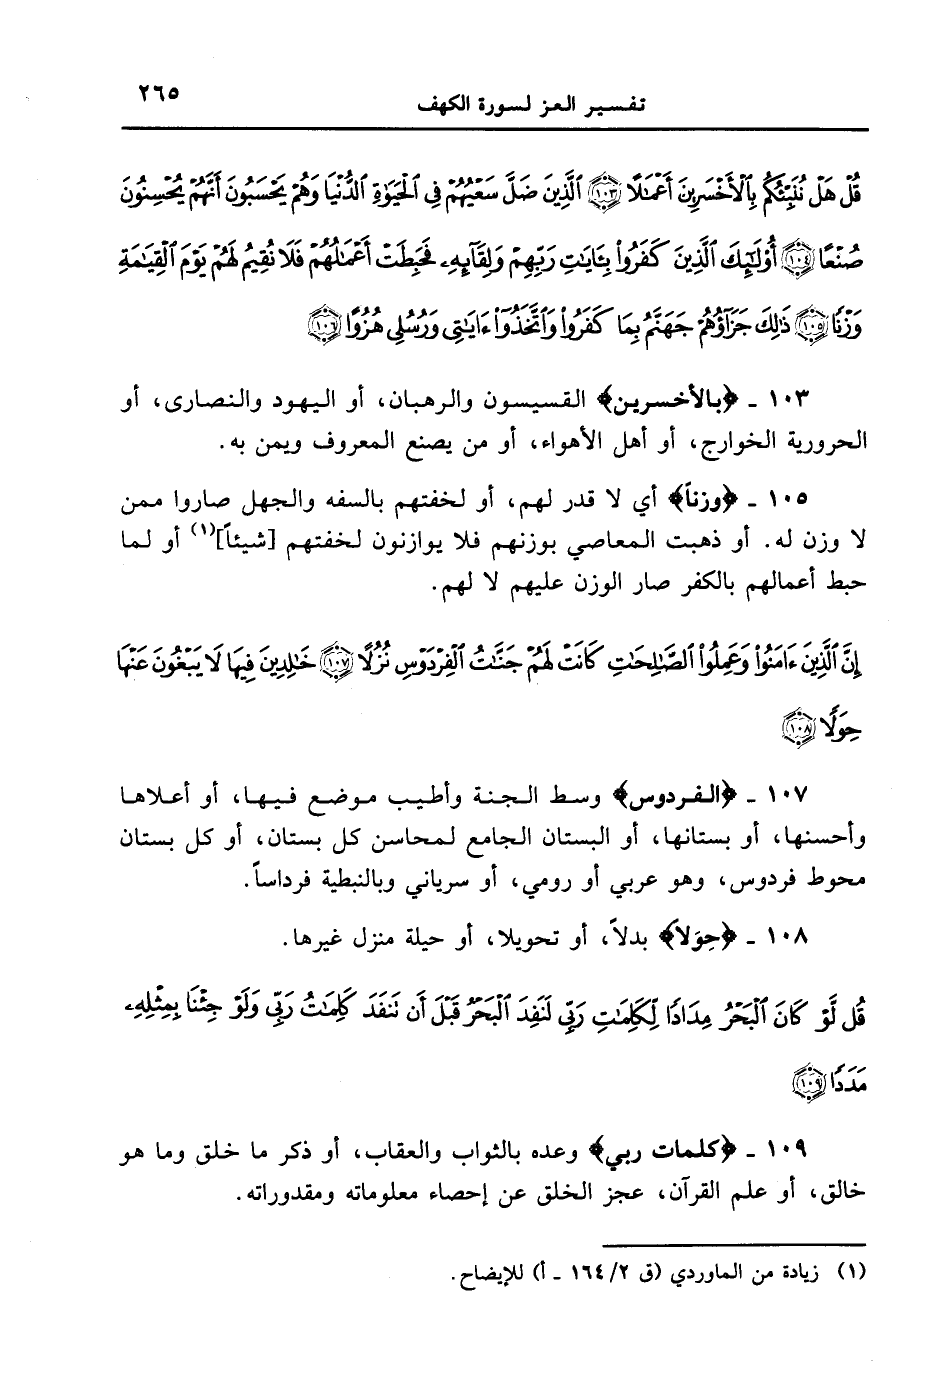 تفسير العز لسورة الكهف ٢٦٥
قُلْ هَلْ نُنَبِّئُكُم بِٱلْأَخْسَرِينَ أَعْمَٰلًا ١٠٣ ٱلَّذِينَ ضَلَّ سَعْيُهُمْ فِى ٱلْحَيَوٰةِ ٱلدُّنْيَا وَهُمْ يَحْسَبُونَ أَنَّهُمْ يُحْسِنُونَ
صُنْعًا ١٠٤ أُو۟لَٰٓئِكَ ٱلَّذِينَ كَفَرُوا۟ بِـَٔايَٰتِ رَبِّهِمْ وَلِقَآئِهِۦ فَحَبِطَتْ أَعْمَٰلُهُمْ فَلَا نُقِيمُ لَهُمْ يَوْمَ ٱلْقِيَٰمَةِ
وَزْنًا ١٠٥ ذَٰلِكَ جَزَآؤُهُمْ جَهَنَّمُ بِمَا كَفَرُوا۟ وَٱتَّخَذُوٓا۟ ءَايَٰتِى وَرُسُلِى هُزُوًا ١٠٦
١٠٣ ـ ﴿بالأخسرين﴾ القسيسون والرهبان، أو اليهود والنصارى، أو
الحرورية الخوارج، أو أهل الأهواء، أو من يصنع المعروف ويمن به.
١٠٥ ـ ﴿وزناً﴾ أي لا قدر لهم، أو لخفتهم بالسفه والجهل صاروا ممن
لا وزن له. أو ذهبت المعاصي بوزنهم فلا يوازنون لخفتهم [شيئاً](١) أو لما
حبط أعمالهم بالكفر صار الوزن عليهم لا لهم.
إِنَّ ٱلَّذِينَ ءَامَنُوا۟ وَعَمِلُوا۟ ٱلصَّٰلِحَٰتِ كَانَتْ لَهُمْ جَنَّٰتُ ٱلْفِرْدَوْسِ نُزُلًا ١٠٧ خَٰلِدِينَ فِيهَا لَا يَبْغُونَ عَنْهَا
حِوَلًا ١٠٨
١٠٧ ـ ﴿الفردوس﴾ وسط الجنة وأطيب موضع فيها، أو أعلاها
وأحسنها، أو بستانها، أو البستان الجامع لمحاسن كل بستان، أو كل بستان
محوط فردوس، وهو عربي أو رومي، أو سرياني وبالنبطية فرداساً.
١٠٨ ـ ﴿حِوَلاً﴾ بدلاً، أو تحويلا، أو حيلة منزل غيرها.
قُل لَّوْ كَانَ ٱلْبَحْرُ مِدَادًا لِّكَلِمَٰتِ رَبِّى لَنَفِدَ ٱلْبَحْرُ قَبْلَ أَن تَنفَدَ كَلِمَٰتُ رَبِّى وَلَوْ جِئْنَا بِمِثْلِهِۦ
مَدَدًا ١٠٩
١٠٩ ـ ﴿كلمات ربي﴾ وعده بالثواب والعقاب، أو ذكر ما خلق وما هو
خالق، أو علم القرآن، عجز الخلق عن إحصاء معلوماته ومقدوراته.
(١) زيادة من الماوردي (ق ٢/ ١٦٤ ـ أ) للإيضاح.